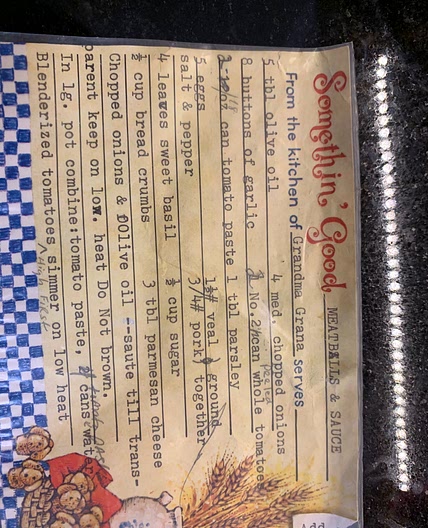 Somethin' Good MEATBALLS & SAUCE
From the kitchen of Grandma Grana serves
5 tbl olive oil 4 med. chopped onions
8 buttons of garlic No. 2½ can whole tomatoe
can tomato paste 1 tbl parsley
5 eggs 1½# veal ground
salt & pepper 3/4# pork together
4 leaves sweet basil ½ cup sugar
½ cup bread crumbs 3 tbl parmesan cheese
Chopped onions & Oolive oil --saute till trans-
parent keep on low. heat Do Not brown.
In lg. pot combine:tomato paste, cans water
Blenderized tomatoes, simmer on low heat
Add